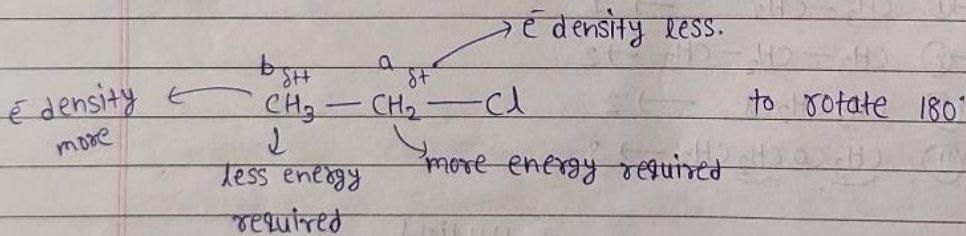 ē density less.
b δ++ a δ+
ē density more ← CH₃ — CH₂ — Cl to rotate 180°
less energy required
more energy required